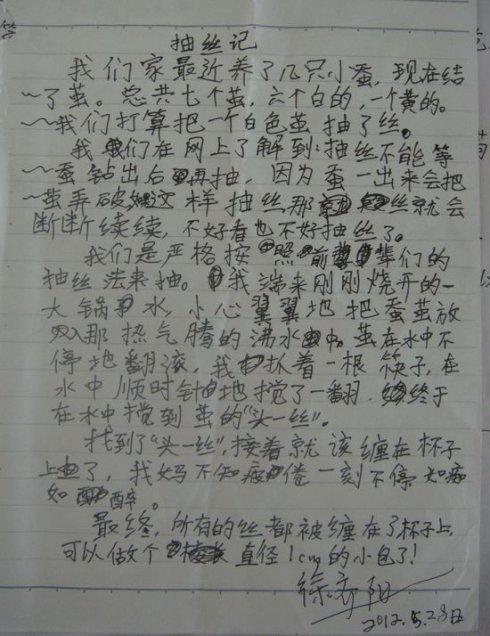 抽丝记
我们家最近养了几只小蚕,现在结
了茧。总共七个茧,六个白的,一个黄的。
我们打算把一个白色茧抽了丝。
我们在网上了解到:抽丝不能等
蚕钻出后再抽,因为蚕一出来会把
茧弄破,这样抽丝那丝就会
断断续续,不好看也不好抽丝了。
我们是严格按照前辈们的
抽丝法来抽。我端来刚刚烧开的一
大锅水,小心翼翼地把蚕茧放
入那热气腾的沸水中。茧在水中不
停地翻滚,我扒着一根筷子,在
水中顺时针地搅了一翻,终于
在水中搅到茧的“头一丝”。
找到了“头一丝”,接着就该缠在杯子
上了,我妈不知疲倦一刻不停如痴
如醉。
最终,所有的丝都被缠在了杯子上,
可以做个直径1cm的小包了!
2012.5.28日